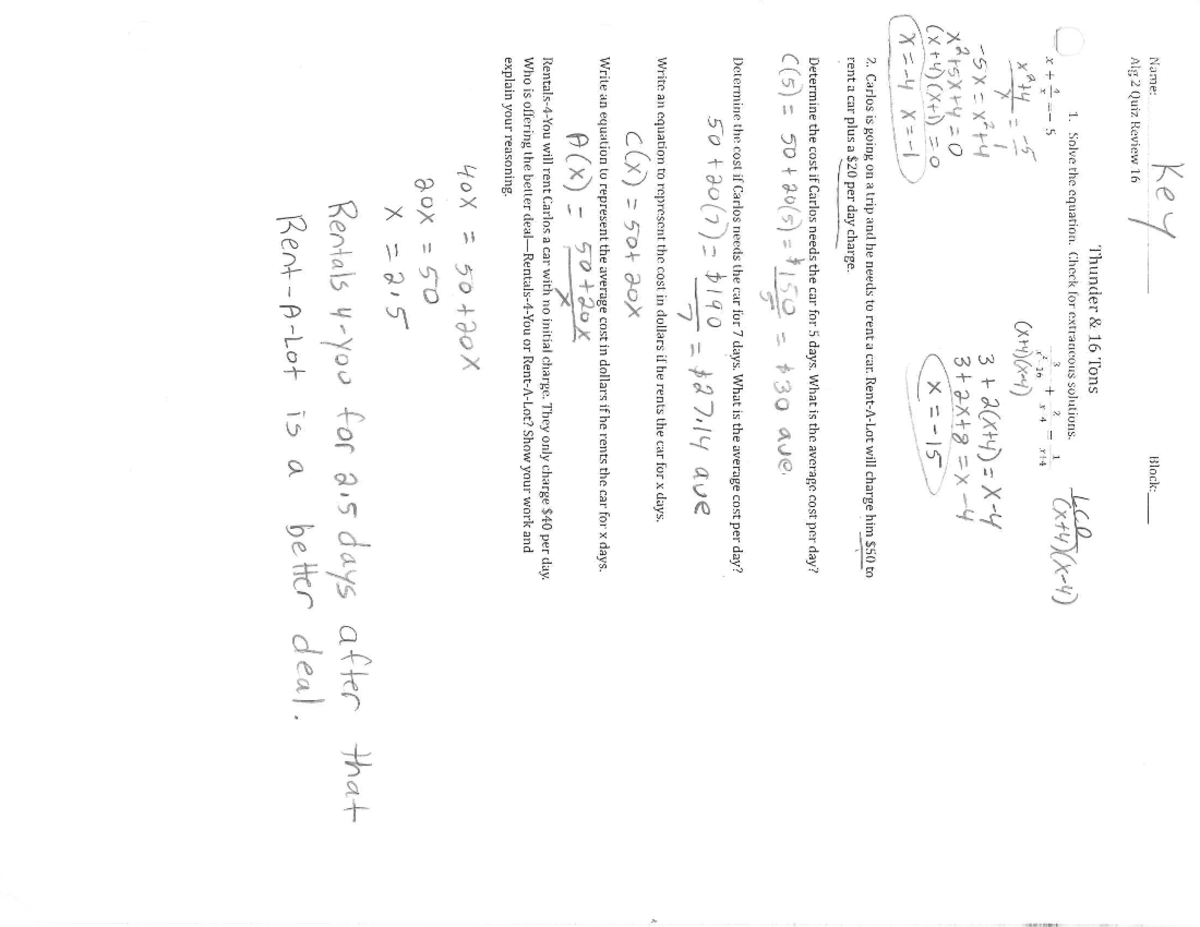 Name: Key Block:
Alg 2 Quiz Review 16
Thunder & 16 Tons
1. Solve the equation. Check for extraneous solutions.
x + 4/x = -5
x²+4/x = -5/1
-5x = x²+4
x²+5x+4=0
(x+4)(x+1)=0
x=-4 x=-1
3/x²-16 + 2/x-4 = 1/x+4
LCD
(x+4)(x-4)
(x+4)(x-4)
3+2(x+4)=x-4
3+2x+8=x-4
x=-15
2. Carlos is going on a trip and he needs to rent a car. Rent-A-Lot will charge him $50 to
rent a car plus a $20 per day charge.
Determine the cost if Carlos needs the car for 5 days. What is the average cost per day?
C(5) = 50+20(5) = $150/5 = $30 ave.
Determine the cost if Carlos needs the car for 7 days. What is the average cost per day?
50+20(7) = $190/7 = $27.14 ave
Write an equation to represent the cost in dollars if he rents the car for x days.
C(x) = 50+20x
Write an equation to represent the average cost in dollars if he rents the car for x days.
A(x) = 50+20x/x
Rentals-4-You will rent Carlos a car with no initial charge. They only charge $40 per day.
Who is offering the better deal—Rentals-4-You or Rent-A-Lot? Show your work and
explain your reasoning.
40x = 50+20x
20x = 50
x = 2.5
Rentals 4-You for 2.5 days after that
Rent-A-Lot is a better deal.